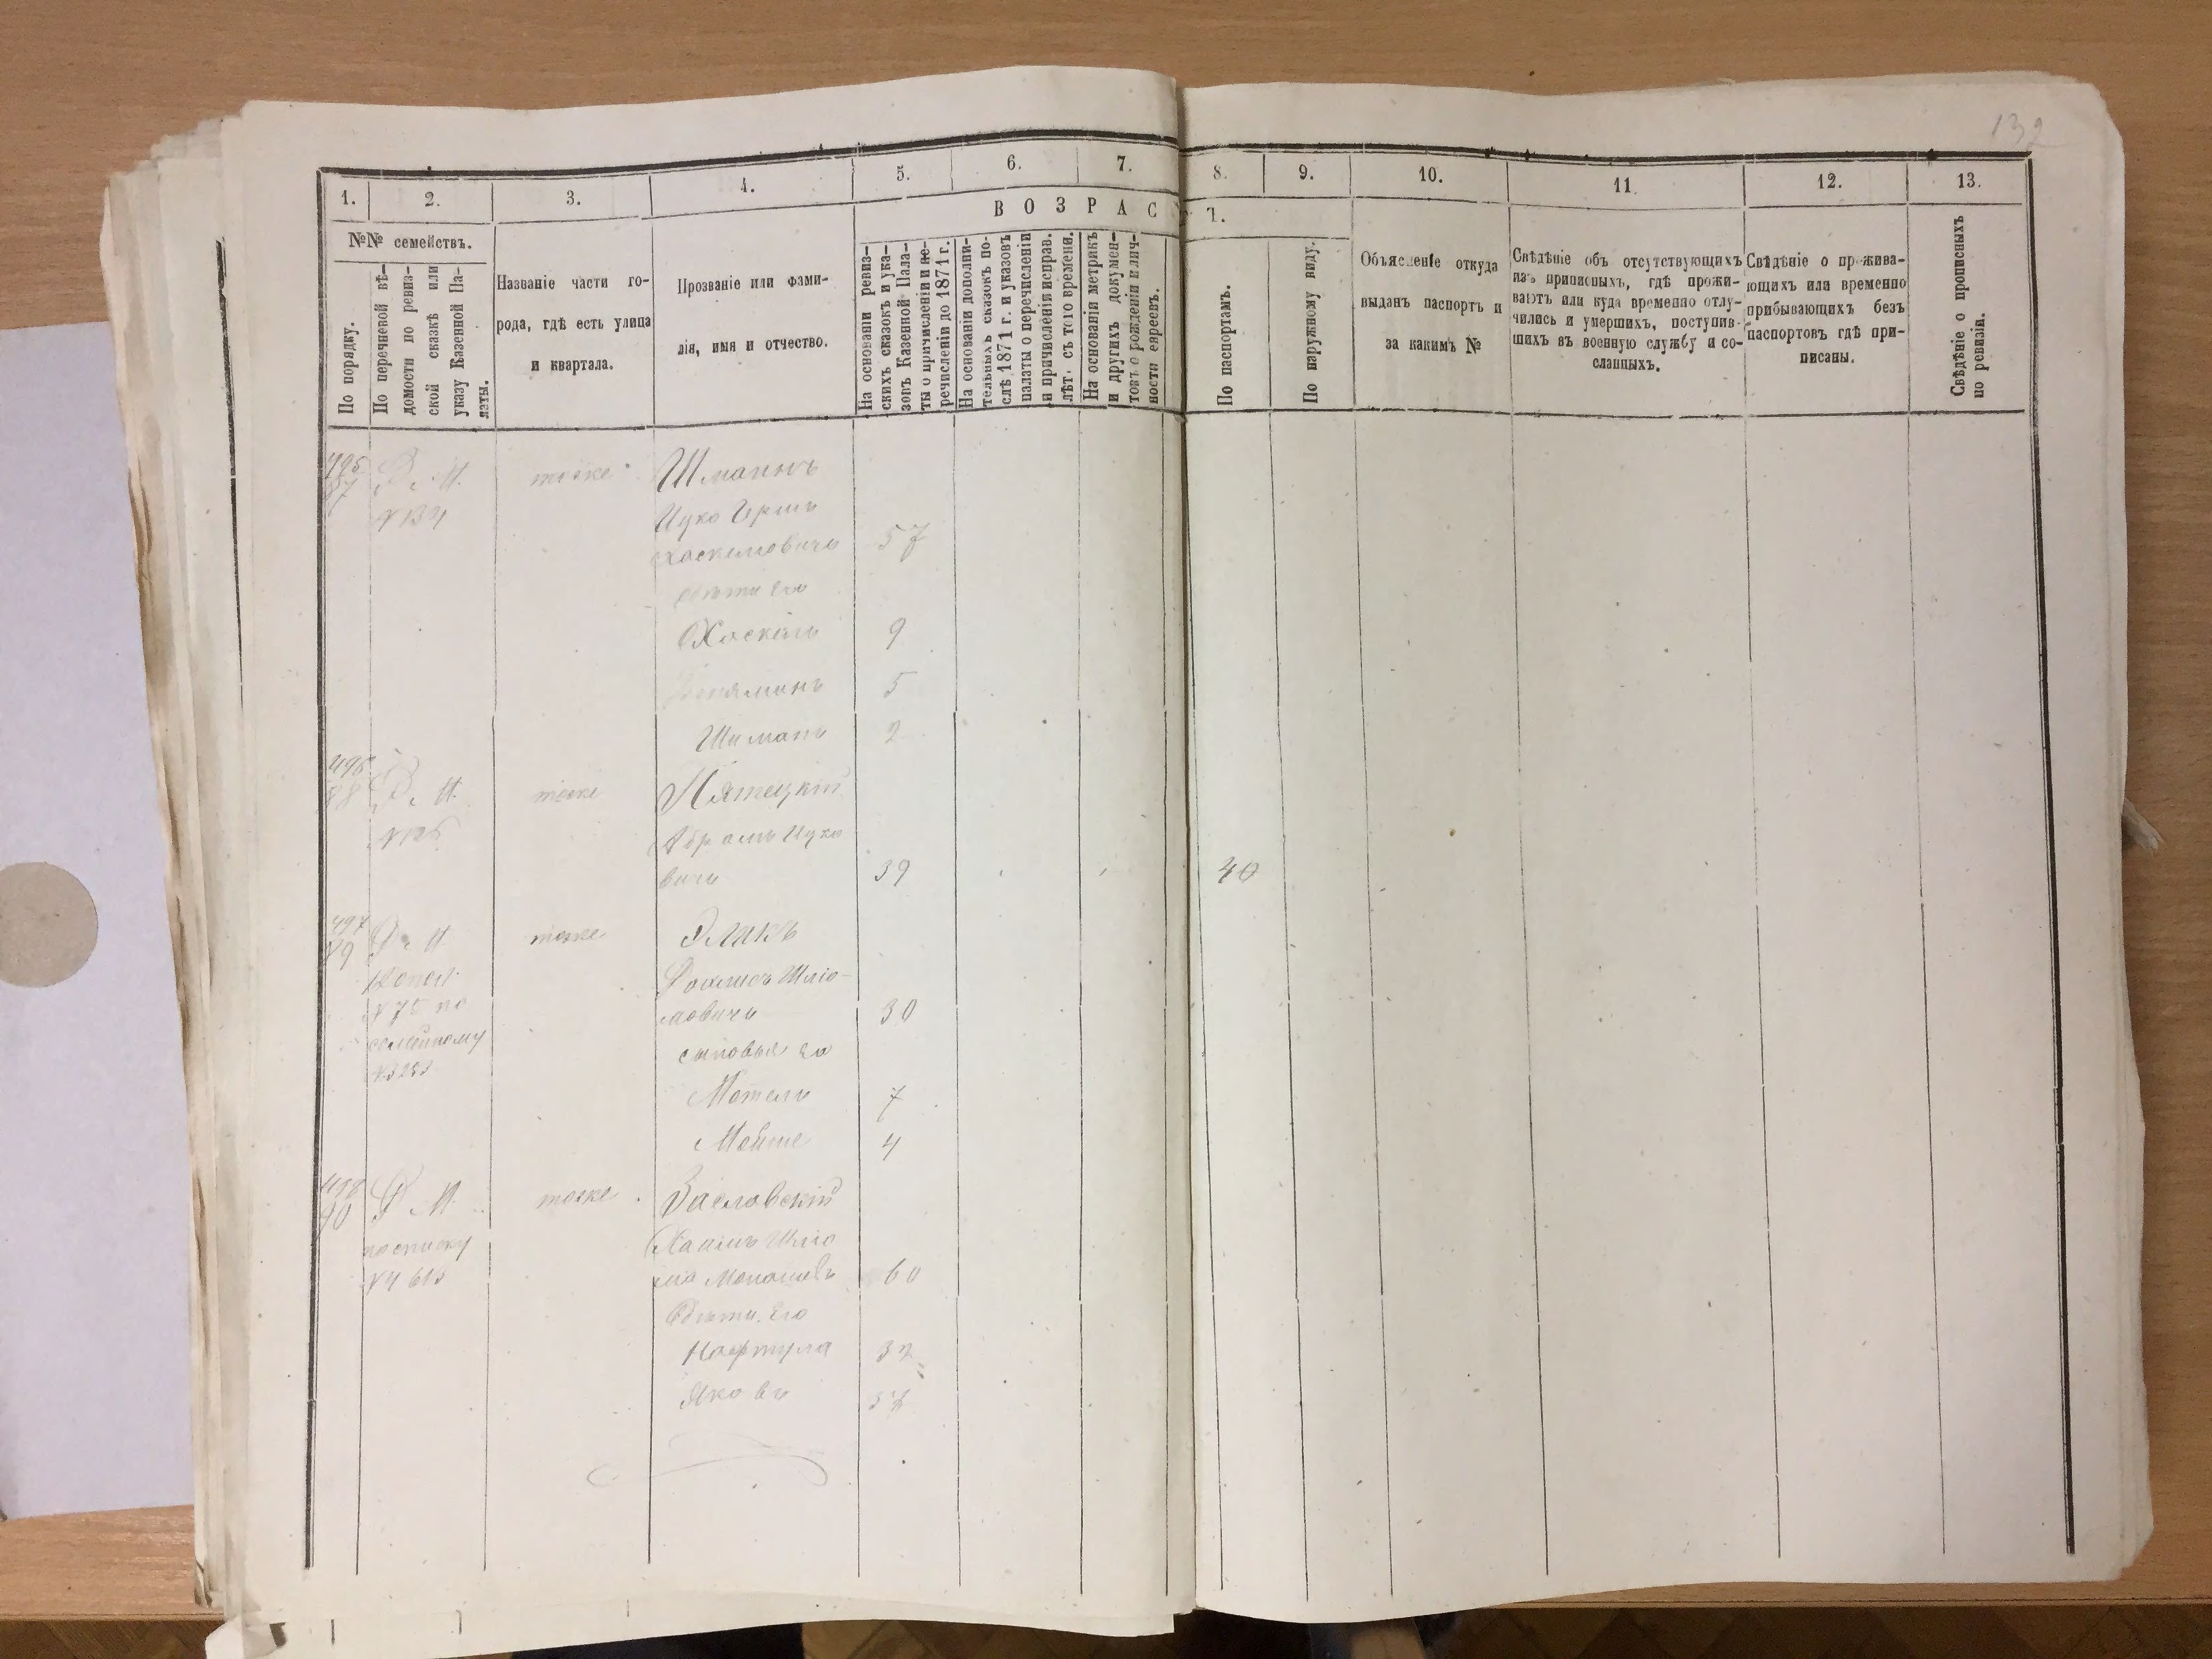 132
1.
2.
3.
4.
5.
6.
7.
8.
9.
10.
11.
12.
13.
ВОЗРАС
Т.
№№ семействъ.
По порядку.
По перечневой вѣ-
домости по ревиз-
ской сказкѣ или
указу Казенной Па-
латы.
Названіе части го-
рода, гдѣ есть улица
и квартала.
Прозваніе или фами-
лія, имя и отчество.
На основаніи ревиз-
скихъ сказокъ и ука-
зовъ Казенной Пала-
ты о причисленіи и пе-
речисленіи до 1871 г.
На основаніи дополни-
тельныхъ сказокъ по-
слѣ 1871 г. и указовъ
палаты о перечисленіи
и причисленіи исправ.
лѣт. съ того времени.
На основаніи метрикъ
и другихъ докумен-
товъ о рожденіи и лич-
ности евреевъ.
По паспортамъ.
По наружному виду.
Объясненіе откуда
выданъ паспортъ и
за какимъ №
Свѣдѣніе объ отсутствующихъ
изъ приписныхъ, гдѣ прожи-
ваютъ или куда временно отлу-
чились и умершихъ, поступив-
шихъ въ военную службу и со-
сланныхъ.
Свѣдѣніе о прожива-
ющихъ или временно
прибывающихъ безъ
паспортовъ гдѣ при-
писаны.
Свѣдѣніе о прописныхъ
по ревизіи.
495
87
тоже
Шмаинъ
Ицко Гершъ
Хаскелевичъ 57
дѣти его
Хаскель 9
Веняминъ 5
Шиманъ 2
496
88
тоже
Пятецкій
Абрамъ Ицко
вичъ 39 40
497
89
тоже
Шліо-
мовичъ 30
№ 75 по
семейному
сыновья его
Мотель 7
Мойше 4
498
90
тоже
Заславскій
по списку
Хаимъ Шліо
ма 60
дѣти его
Нафтула 32
Яковъ